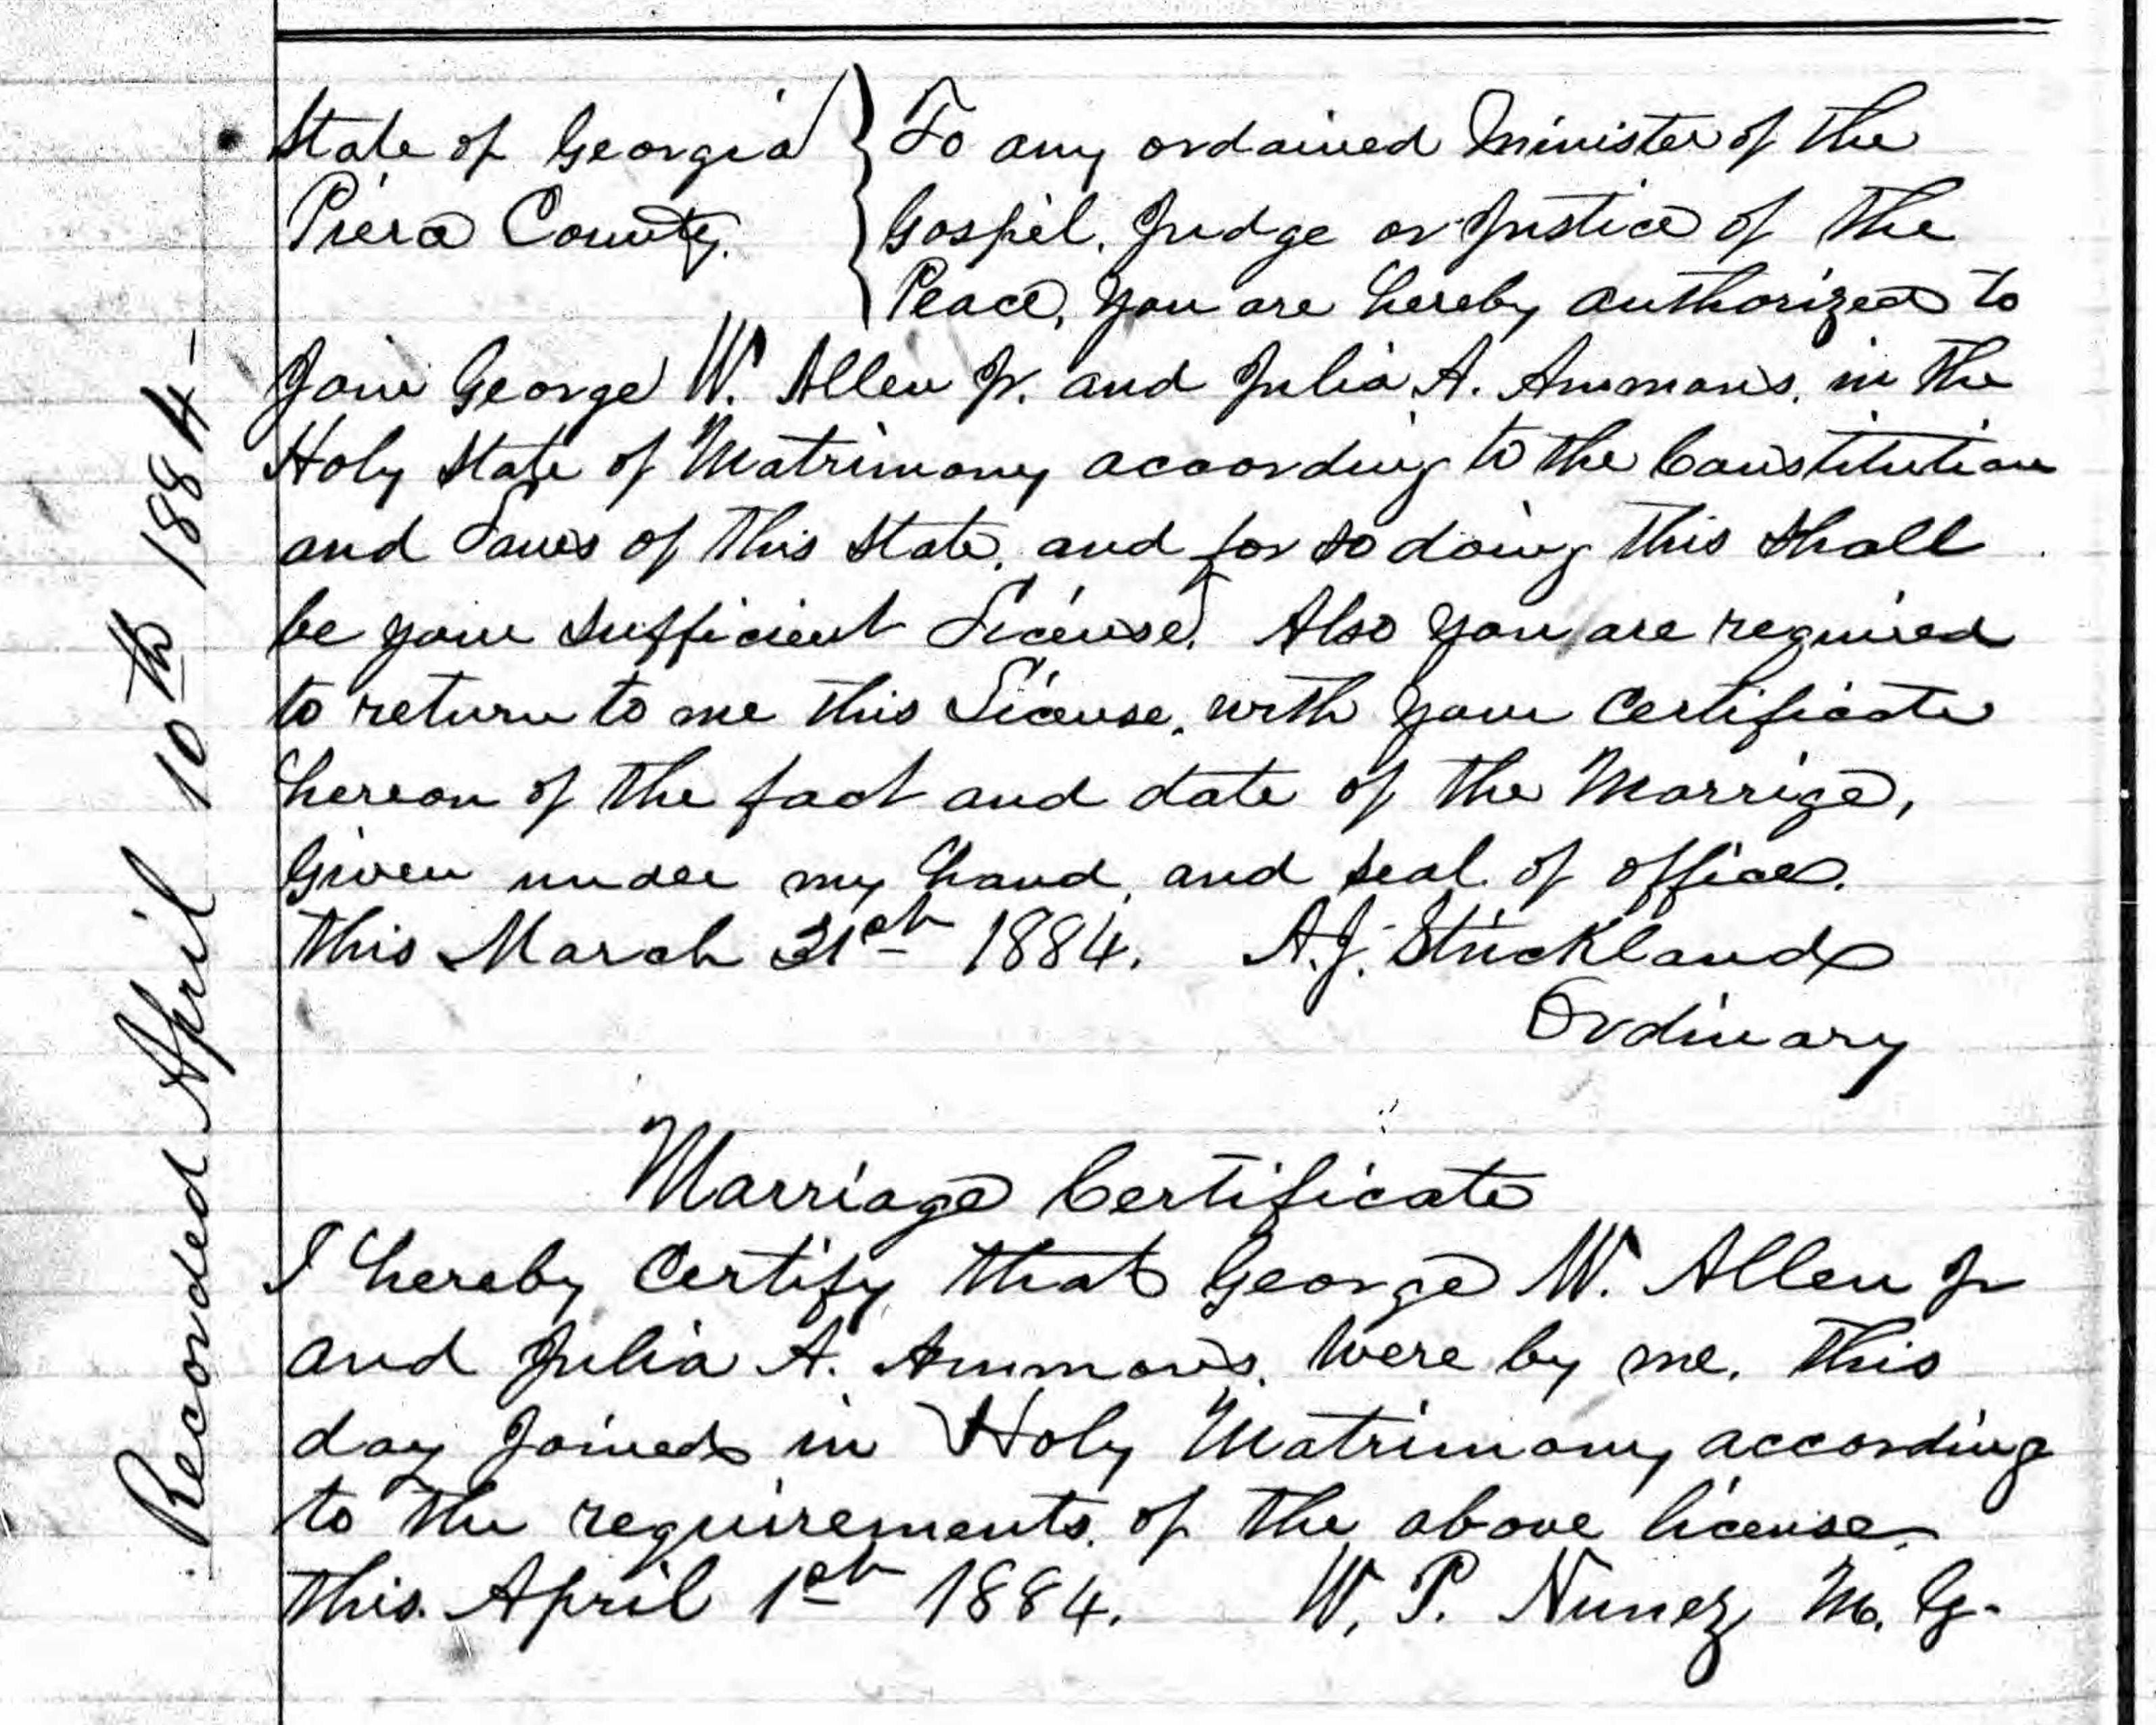 State of Georgia } To any ordained Minister of the
Pierce County. } Gospel, Judge or Justice of the
Peace, You are hereby authorized to
Join George W. Allen Jr. and Julia A. Ammons, in the
Holy State of Matrimony according to the Constitution
and Laws of this State, and for so doing this shall
be your sufficient License. Also you are required
to return to me this License, with your Certificate
hereon of the fact and date of the Marrige,
Given under my hand, and seal of office.
this March 31st 1884. A.J. Strickland
Ordinary
Marriage Certificate
I hereby Certify that George W. Allen Jr
and Julia A. Ammons, were by me, this
day Joined in Holy Matrimony according
to the requirements of the above license,
this April 1st 1884. W. P. Nunez M. G.
Reconded April 10th 1884-